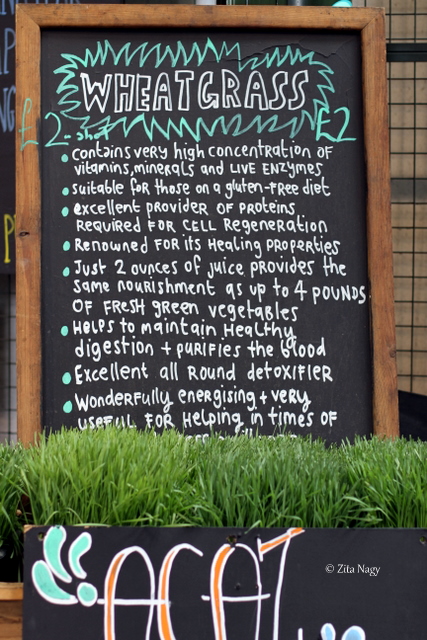 WHEATGRASS
£2-shot
£2
contains very high concentration of
vitamins, minerals and LIVE ENZYMES
suitable for those on a gluten-free diet
excellent provider of proteins
REQUIRED FOR CELL Regeneration
Renowned for its Healing PROPERTIES
Just 2 ounces of juice provides the
same nourishment as up to 4 POUNDS
OF FRESH green vegetables
Helps to maintain Healthy
digestion + purifies the blood
Excellent all Round detoxifier
Wonderfully energising + very
useful for Helping in times of
ACAI
© Zita Nagy